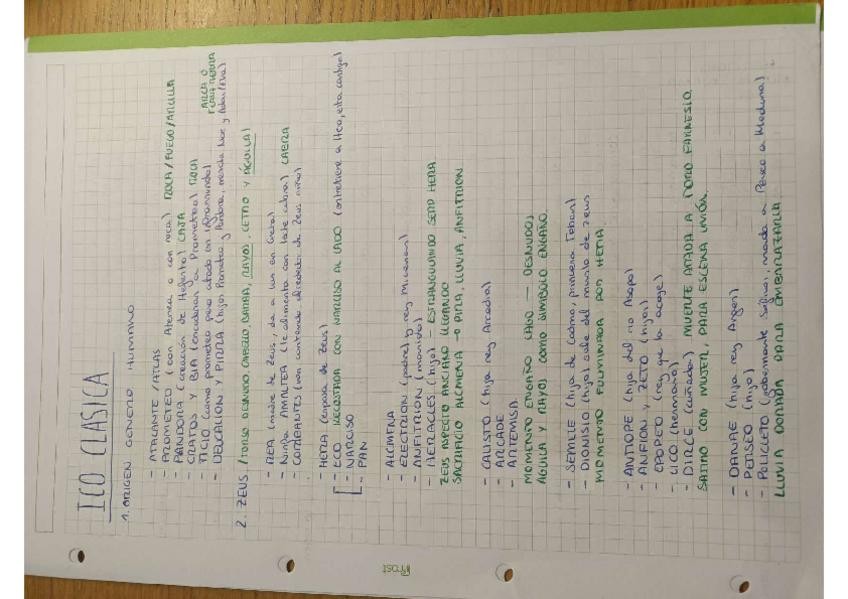 ICO CLASICA
1. ORIGEN GENERO HUMANO
- ATALANTE/ATLAS
- PROMETEO (con Atenea o con roca) ROCA/FUEGO/ARCILLA
- PANDORA (creación de Hefesto) CAJA
- CRATOS Y BIA (encadenan a Prometeo) ROCA
- TICIO (como prometeo pero atado en inframundo)
- DEUCALION Y PIRRA (hijos Prometeo y Pandora, mezcla Noe y Adan/Eva) ARCA O
2. ZEUS / TORSO DESNUDO, CABELLO, BARBA, RAYO, CETRO Y ÁGUILA/
- REA (madre de Zeus, da a luz en Creta)
- Ninfa AMALTEA (le alimenta con leche cabra) CABRA
- CORIBANTES (van cantando alrededor de Zeus niño)
- HERA (esposa de Zeus)
- ECO RECOSTADA CON NARCISO AL LADO (entretiene a Hera, esta castiga)
- NARCISO
- PAN
- ALCMENA
- ELECTRION (padre) y rey Micenas)
- ANFITRION (marido)
- HERACLES (hijo) - ESTRANGULANDO SERP HERA
ZEUS ASPECTO ANCIANO LLEGANDO
SACRIFICIO ALCMENA → PIRA, LLUVIA, ANFITRION
- CALISTO (hija rey Arcadia)
- ARCADE
- ARTEMISA
MOMENTO ENGAÑO LAGO — DESNUDOS
ÁGUILA Y RAYOS COMO SIMBOLO ENGAÑO.
- SEMELE (hija de Cadmo, primera Tebas)
- DIONISIO (hijo) sale del muslo de zeus
MOMENTO FULMINADA POR HERA.
- ANTIOPE (hija del rio Asopo)
- ANFION, ZETO (hijos)
- EPOPEO (rey que la acoge)
- LICO (hermano)
- DIRCE (cuñada) MUERTE ATADA A TORO FARNESIO.
SATIRO CON MUJER, PARA ESCENA UNIÓN.
- DANAE (hija rey Argos)
- PERSEO (hijo)
- POLICLETO (gobernante Sefiros, manda a Perseo a Medusa)
LLUVIA DORADA PARA EMBARAZARLA